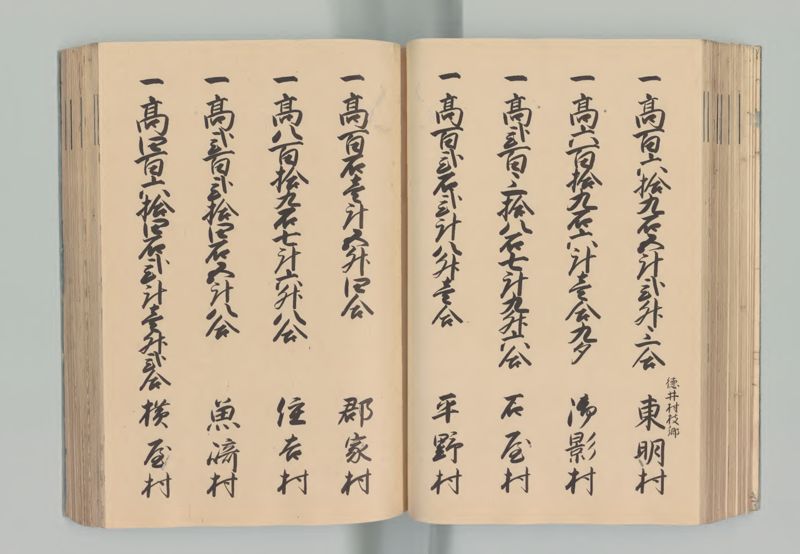 一高百六拾九石五斗弐升三合
徳井村枝郷
東明村
一高六百拾九石六斗壱合九夕
御影村
一高弐百三拾八石七斗九升六合
石屋村
一高百弐石弐斗八升壱合
平野村
一高百石壱斗五升四合
郡家村
一高八百拾九石七斗六升八合
住吉村
一高弐百弐拾四石五斗八合
魚崎村
一高四百六拾四石弐斗壱升弐合
横屋村